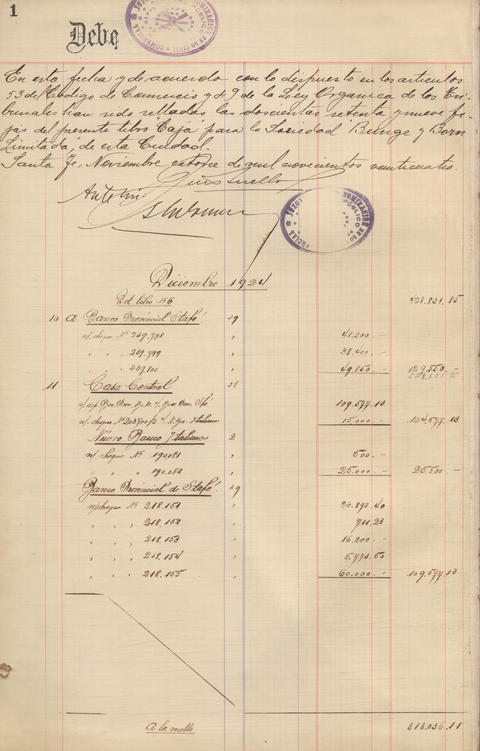 1
Debe
En esta fecha y de acuerdo con lo dispuesto en los articulos
53 del Codigo de Comercio y 49 de la Ley Organica de los Tri-
bunales han sido selladas, las doscientas setenta y nueve fo-
jas del presente libro Caja para la Sociedad Bunge y Born
Limitada, de esta Ciudad.
Santa Fe, Noviembre catorce de mil novecientos veinticuatro.
Diciembre 1924
Del libro Nº 6 428.831.85
10 a Banco Provincial Sta fé 29
n/ cheque Nº 239.798 " 41.300.-
" " 239.799 " 38.400.-
" " 239.800 " 49.850.- 129.550.-
11 Casa Central
109.577.13
15.000.- 124.577.13
Nuevo Banco Italiano 2
n/ cheque Nº 190081 " 500.-
" " 190.082 " 25.000.- 25.500.-
Banco Provincial de Sta fé 29
n/cheque Nº 218.151 " 26.892.40
" " 218.152 " 711.23
" " 218.153 " 16.200.-
" " 218.154 " 5.773.50
" " 218.155 " 60.000.- 109.577.13
A la vuelta 818.036.11